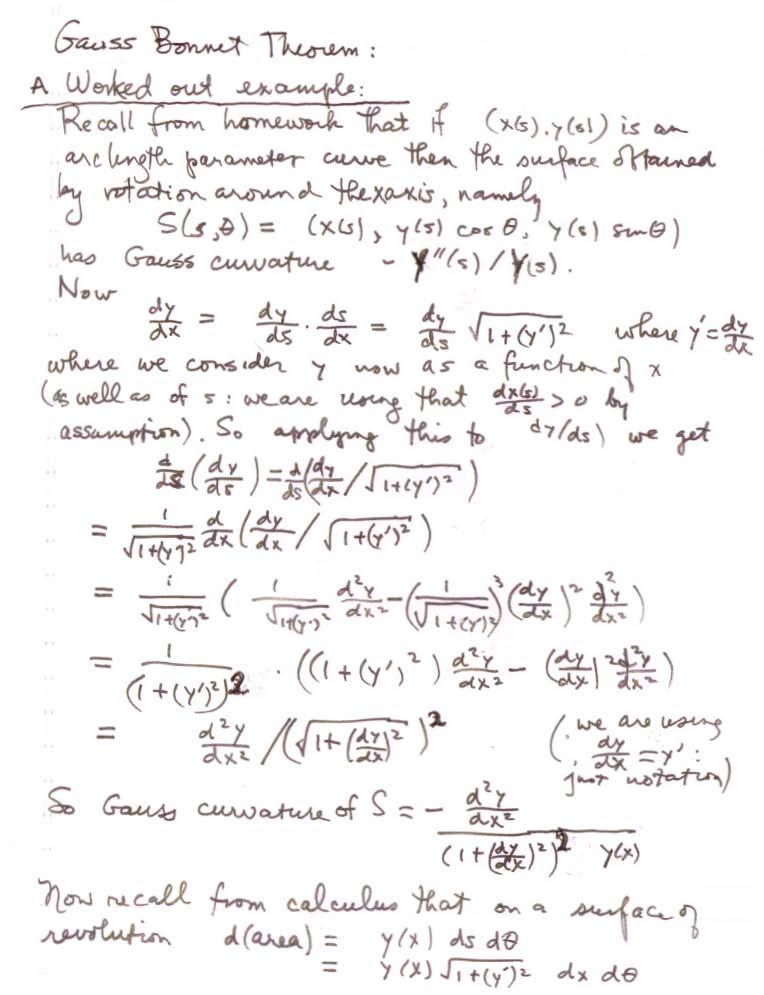 Gauss Bonnet Theorem:
A Worked out example:
Recall from homework that if (x(s), y(s)) is an
arclength parameter curve then the surface obtained
by rotation around the x axis, namely
S(s,θ) = (x(s), y(s) cos θ, y(s) sin θ)
has Gauss curvature - y''(s) / y(s).
Now
dy/dx = dy/ds · ds/dx = dy/ds √(1+(y')²) where y' = dy/dx
where we consider y now as a function of x
(as well as of s: we are using that dx(s)/ds > 0 by
assumption). So applying this to dy/ds) we get
d/ds (dy/ds) = d/ds (dy/dx / √(1+(y')²))
= 1/√(1+(y')²) d/dx (dy/dx / √(1+(y')²))
= 1/√(1+(y')²) ( 1/√(1+(y')²) d²y/dx² - (1/√(1+(y')²))³ (dy/dx)² d²y/dx² )
= 1/(1+(y')²)² · ((1+(y')²) d²y/dx² - (dy/dx)² d²y/dx²)
= d²y/dx² / (√(1+(dy/dx)²)² (we are using
dy/dx = y':
just notation)
So Gauss curvature of S = - d²y/dx² / (1+(dy/dx)²)² y(x)
Now recall from calculus that on a surface of
revolution d(area) = y(x) ds dθ
= y(x) √(1+(y')²) dx dθ